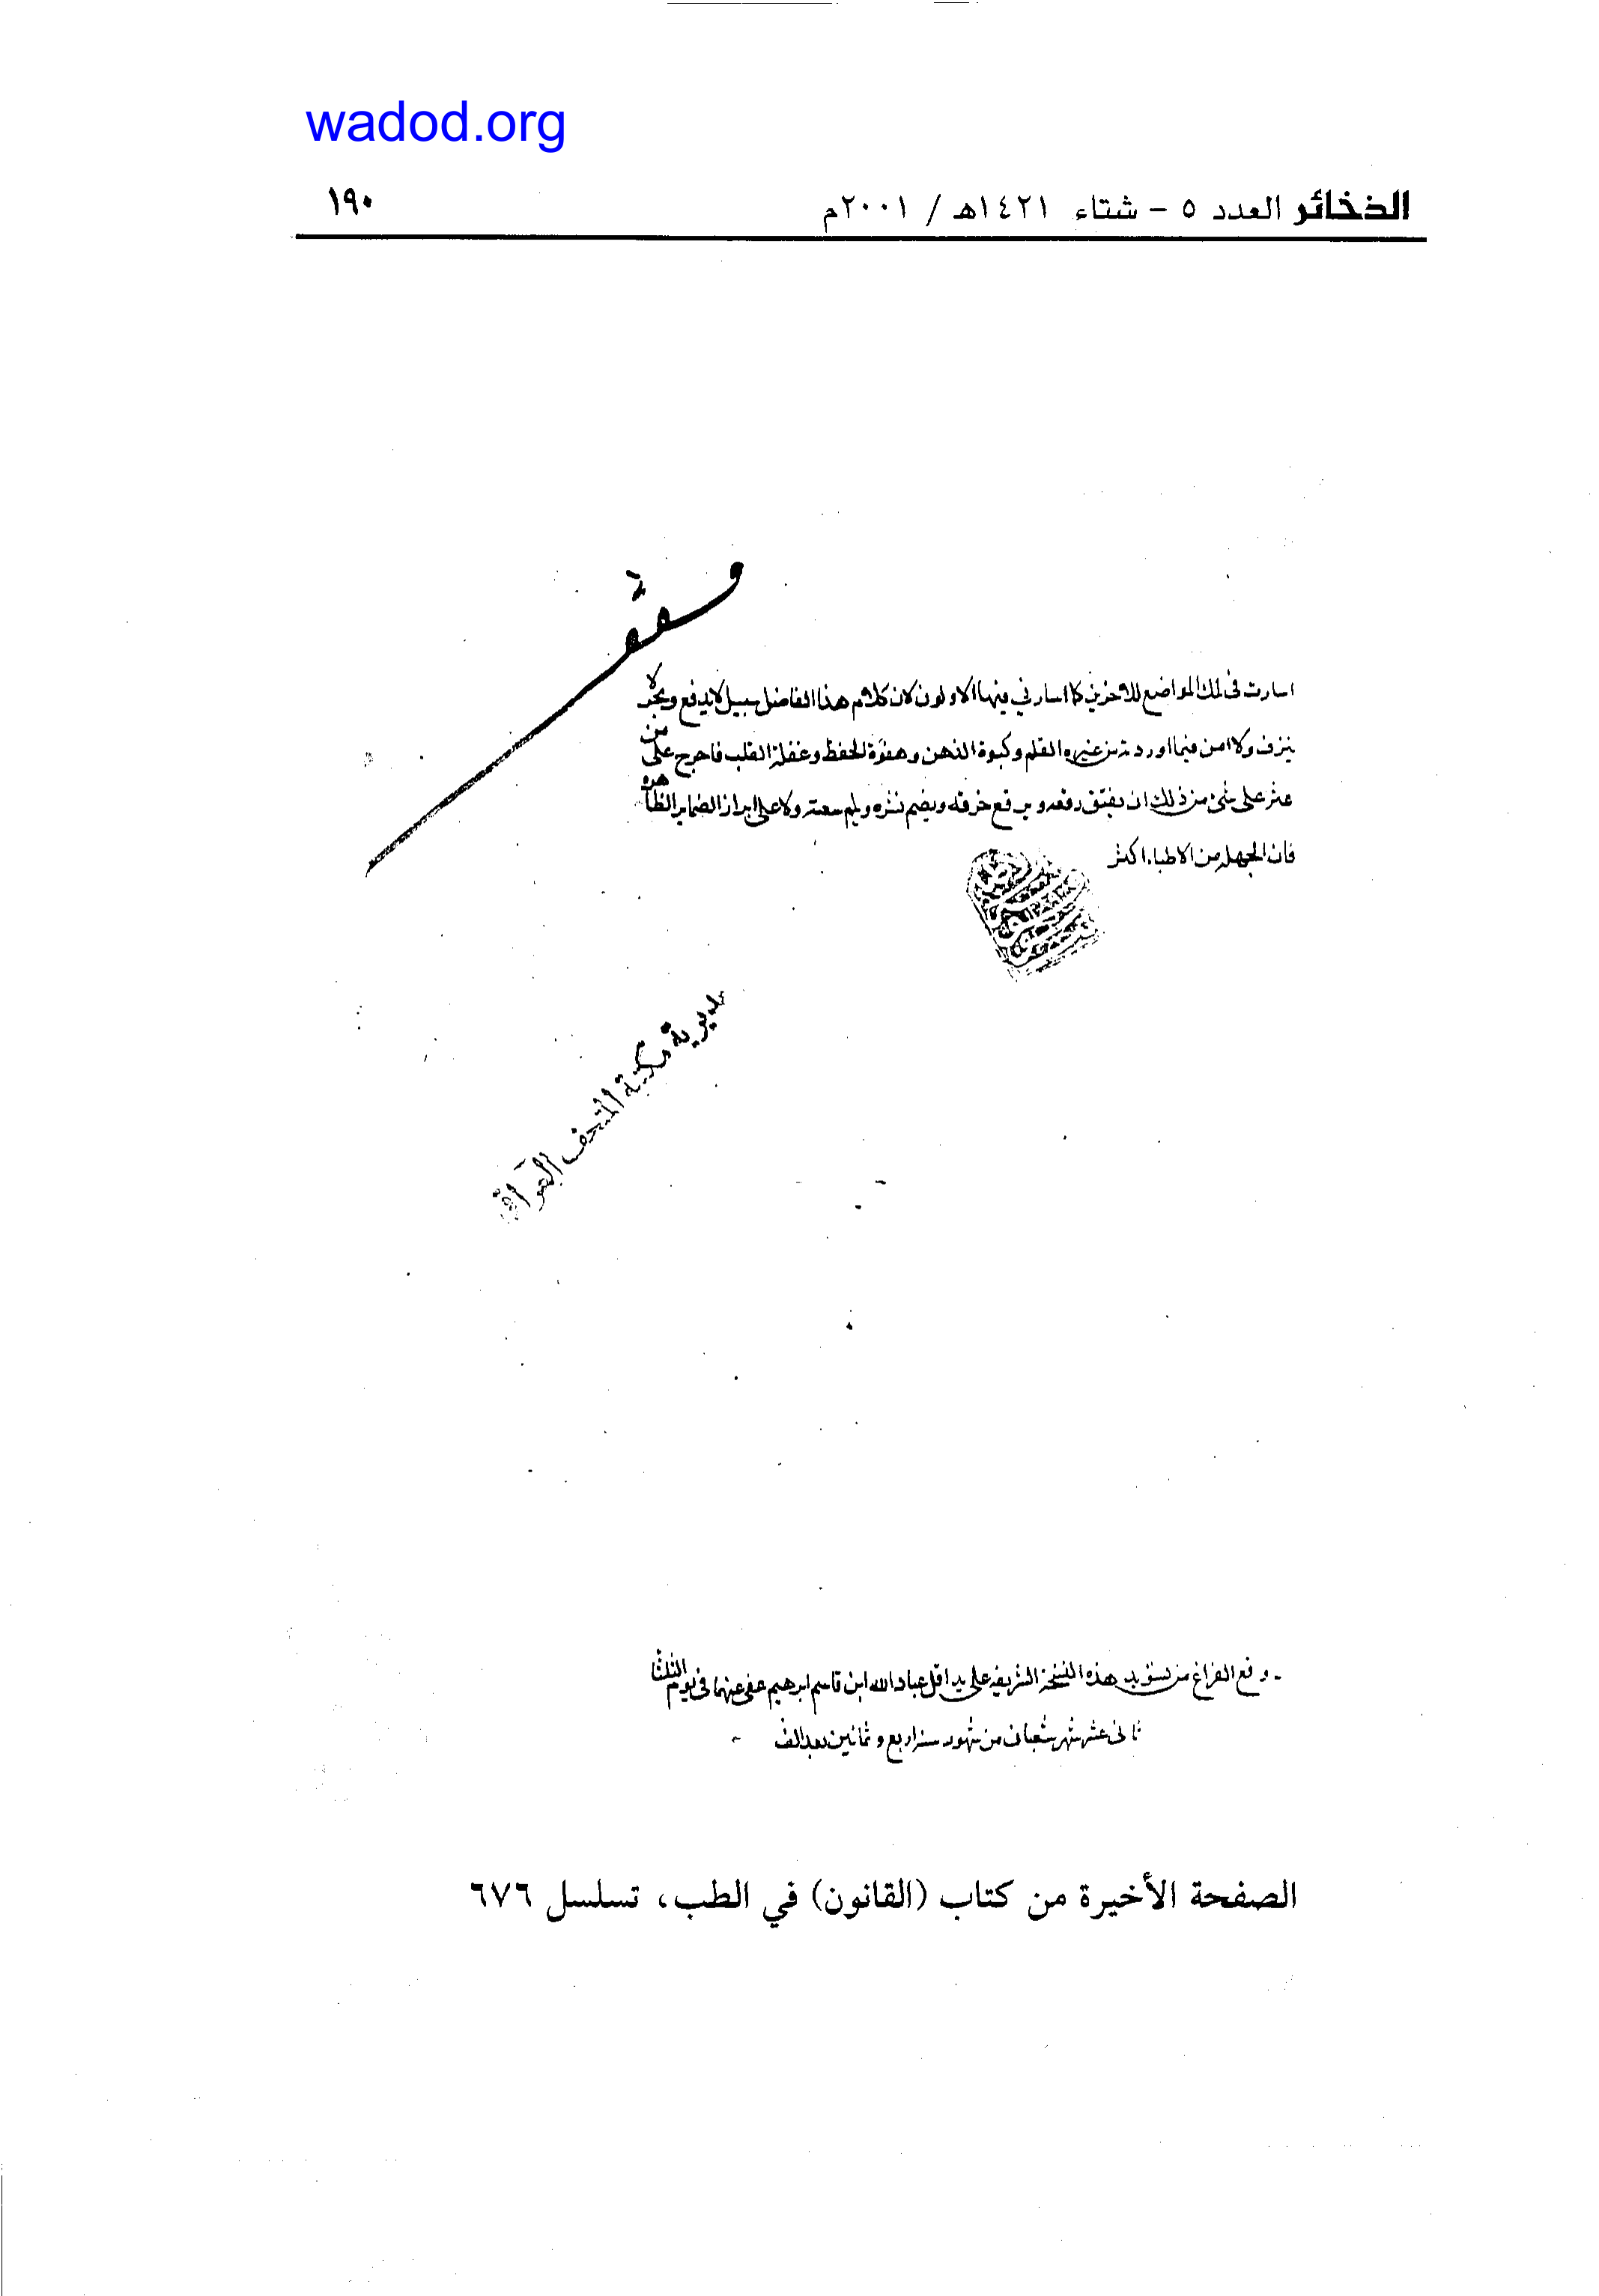 wadod.org
الذخائر العدد ٥ - شتاء ١٤٢١هـ / ٢٠٠١م
١٩٠
وقف
اسارت فى تلك المواضع للاخرين كما اسار لي فيها الاولون لان كلام هذا الفاضل سيل لا يدفع وبحر لا
ينزف ولا امن فيما اوردته من القلم وكبوة الذهن وهفوة الحفظ وغفلة القلب فاحرج على من
عثر على شئ من ذلك ان يفتق رقعه ويرقع خرقه ويضم نثره ويلم ولا على ابراز الضماير الظاهره
فان الجهلة من الاطباء اكثر
مديرية مكتبة المتحف العراقي
وقع الفراغ من تسويد هذه النسخة الشريفه على يد اقل عباد الله ابن قاسم ابرهيم عفى عنهما فى يوم الثلثا
ثانى عشر شهر شعبان من شهور سنة اربع وثمانين بعد الف
الصفحة الأخيرة من كتاب (القانون) في الطب، تسلسل ٦٧٦